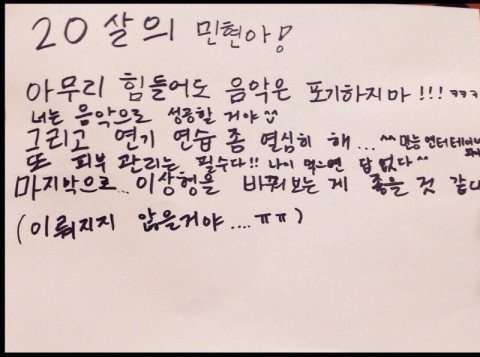 20살의 민현아!
아무리 힘들어도 음악은 포기하지마!!! ㅋㅋㅋ
너는 음악으로 성공할 거야 ^^
그리고 연기 연습 좀 열심히 해... ^^ 만능 엔터테이너
또 피부 관리는 필수다!! 나이 먹으면 답없다^^
마지막으로... 이상형을 바꿔보는 게 좋을 것 같다
(이뤄지지 않을거야.... ㅠㅠ)